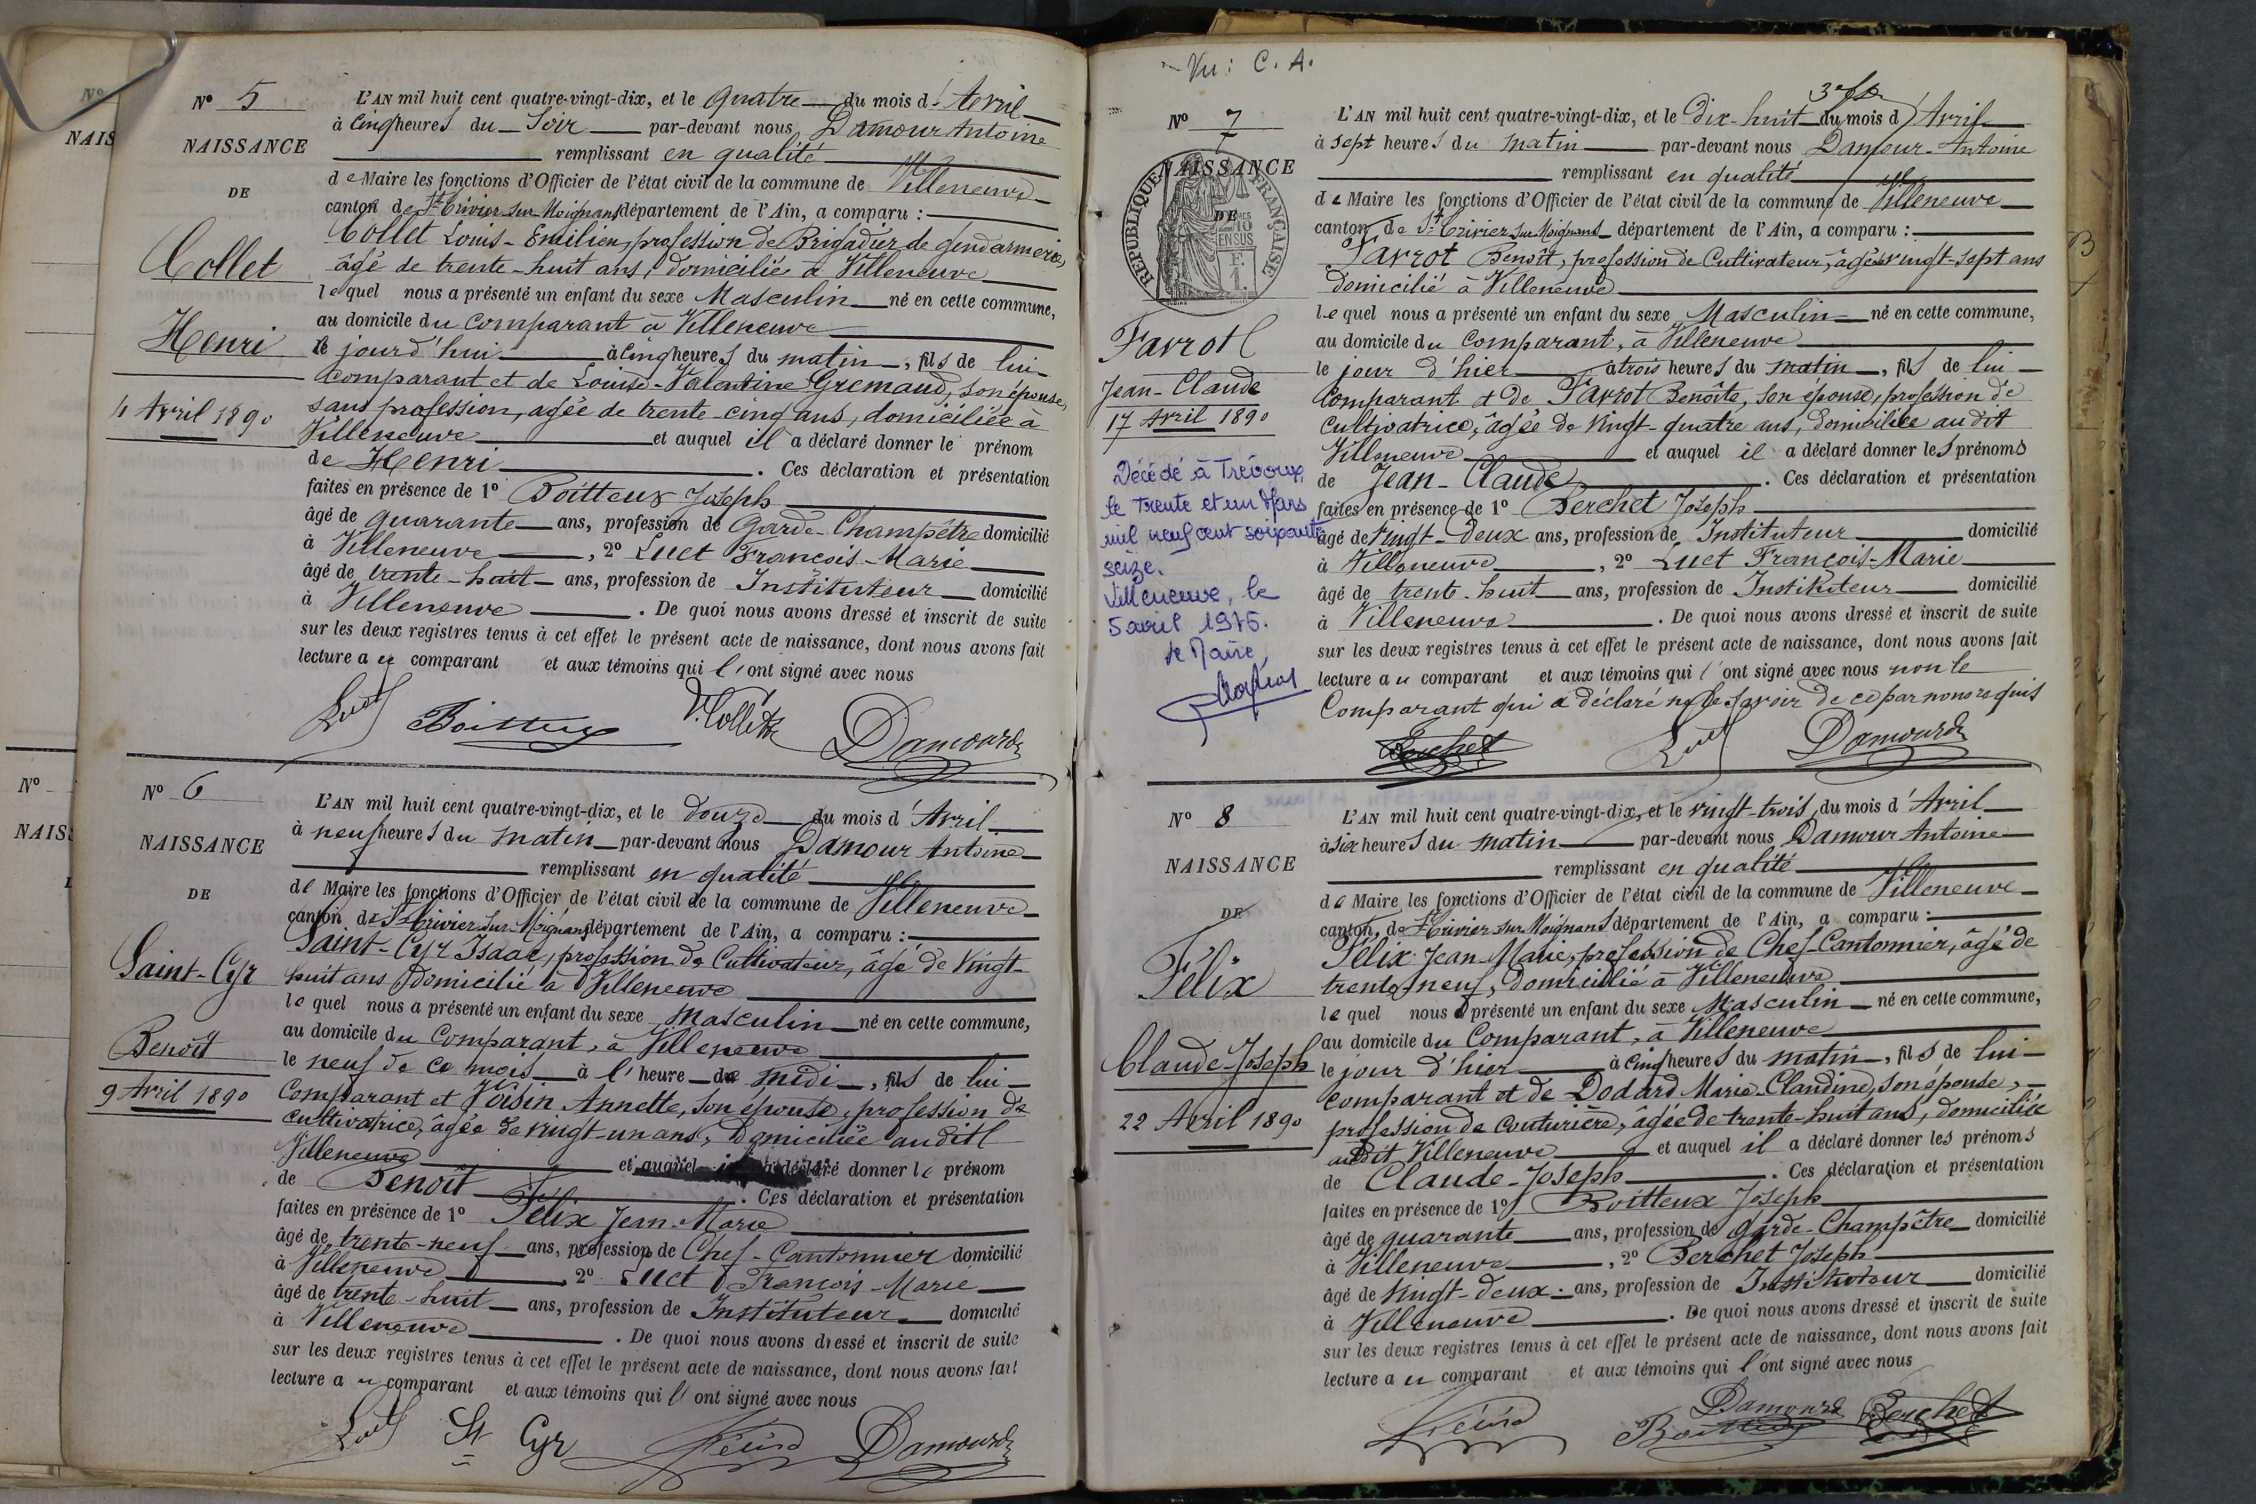 N° 5
NAISSANCE
DE
Collet
Henri
4 Avril 1890
L'AN mil huit cent quatre-vingt-dix, et le quatre du mois d'Avril
à cinq heures du Soir par-devant nous Damour Antoine
remplissant en qualité
de Maire les fonctions d'Officier de l'état civil de la commune de Villeneuve
canton de St Trivier sur Moignans département de l'Ain, a comparu :
Collet Louis-Emilien, profession de Brigadier de gendarmerie,
âgé de trente-huit ans, domicilié à Villeneuve
lequel nous a présenté un enfant du sexe Masculin né en cette commune,
au domicile du comparant à Villeneuve
le jourd'hui à cinq heures du matin, fils de lui
comparant et de Louise-Valentine Gremaud, son épouse,
sans profession, agée de trente-cinq ans, domiciliée à
Villeneuve et auquel il a déclaré donner le prénom
de Henri . Ces déclaration et présentation
faites en présence de 1° Boitteux Joseph
âgé de quarante ans, profession de Garde-Champêtre domicilié
à Villeneuve , 2° Luct François-Marie
âgé de trente-huit ans, profession de Instituteur domicilié
à Villeneuve . De quoi nous avons dressé et inscrit de suite
sur les deux registres tenus à cet effet le présent acte de naissance, dont nous avons fait
lecture au comparant et aux témoins qui l'ont signé avec nous
Luct Boitteux Collet Damour
N° 6
NAISSANCE
DE
Saint-Cyr
Benoît
9 Avril 1890
L'AN mil huit cent quatre-vingt-dix, et le douze du mois d'Avril
à neuf heures du matin par-devant nous Damour Antoine
remplissant en qualité
de Maire les fonctions d'Officier de l'état civil de la commune de Villeneuve
canton de St Trivier sur Moignans département de l'Ain, a comparu :
Saint-Cyr Isaac, profession de Cultivateur, âgé de vingt-
huit ans domicilié à Villeneuve
lequel nous a présenté un enfant du sexe Masculin né en cette commune,
au domicile du Comparant, à Villeneuve
le neuf de ce mois à l'heure de midi, fils de lui
Comparant et Voisin Annette, son épouse, profession de
cultivatrice, âgée de vingt-un ans, Domiciliée audit
Villeneuve et auquel il a déclaré donner le prénom
de Benoît . Ces déclaration et présentation
faites en présence de 1° Félix Jean-Marie
âgé de trente-neuf ans, profession de Chef-Cantonnier domicilié
à Villeneuve , 2° Luct François-Marie
âgé de trente-huit ans, profession de Instituteur domicilié
à Villeneuve . De quoi nous avons dressé et inscrit de suite
sur les deux registres tenus à cet effet le présent acte de naissance, dont nous avons fait
lecture au comparant et aux témoins qui l'ont signé avec nous
Luct St Cyr Félix Damour
Vu : C. A.
N° 7
NAISSANCE
DE
RÉPUBLIQUE FRANÇAISE
Farrot
Jean-Claude
17 Avril 1890
Décédé à Trévoux,
le trente et un Mars
mil neuf cent soixante
seize.
Villeneuve, le
5 avril 1976.
Le Maire,
L'AN mil huit cent quatre-vingt-dix, et le Dix-huit du mois d'Avril
à sept heures du matin par-devant nous Damour-Antoine
remplissant en qualité
de Maire les fonctions d'Officier de l'état civil de la commune de Villeneuve
canton de St Trivier sur Moignans département de l'Ain, a comparu :
Farrot Benoît, profession de Cultivateur, âgé de vingt-sept ans
domicilié à Villeneuve
lequel nous a présenté un enfant du sexe Masculin né en cette commune,
au domicile du Comparant, à Villeneuve
le jour d'hier à trois heures du matin, fils de lui
Comparant et de Farrot Benoîte, son épouse, profession de
cultivatrice, âgée de vingt-quatre ans, domiciliée audit
Villeneuve et auquel il a déclaré donner les prénoms
de Jean-Claude . Ces déclaration et présentation
faites en présence de 1° Berchet Joseph
âgé de vingt-deux ans, profession de Instituteur domicilié
à Villeneuve , 2° Luct François-Marie
âgé de trente-huit ans, profession de Instituteur domicilié
à Villeneuve . De quoi nous avons dressé et inscrit de suite
sur les deux registres tenus à cet effet le présent acte de naissance, dont nous avons fait
lecture au comparant et aux témoins qui l'ont signé avec nous non le
Comparant qui a déclaré ne le savoir de ce par nous requis
Berchet Luct Damour
N° 8
NAISSANCE
DE
Félix
Claude-Joseph
22 Avril 1890
L'AN mil huit cent quatre-vingt-dix, et le vingt-trois du mois d'Avril
à six heures du matin par-devant nous Damour Antoine
remplissant en qualité
de Maire les fonctions d'Officier de l'état civil de la commune de Villeneuve
canton de St Trivier sur Moignans département de l'Ain, a comparu :
Félix Jean-Marie, profession de Chef-Cantonnier, âgé de
trente neuf, domicilié à Villeneuve
lequel nous a présenté un enfant du sexe Masculin né en cette commune,
au domicile du Comparant, à Villeneuve
le jour d'hier à cinq heures du matin, fils de lui
comparant et de Dodard Marie-Claudine, son épouse,
profession de couturière, âgée de trente-huit ans, domiciliée
audit Villeneuve et auquel il a déclaré donner les prénoms
de Claude-Joseph . Ces déclaration et présentation
faites en présence de 1° Boitteux Joseph
âgé de quarante ans, profession de garde-Champêtre domicilié
à Villeneuve , 2° Berchet Joseph
âgé de vingt-deux ans, profession de Instituteur domicilié
à Villeneuve . De quoi nous avons dressé et inscrit de suite
sur les deux registres tenus à cet effet le présent acte de naissance, dont nous avons fait
lecture au comparant et aux témoins qui l'ont signé avec nous
Félix Boitteux Damour Berchet